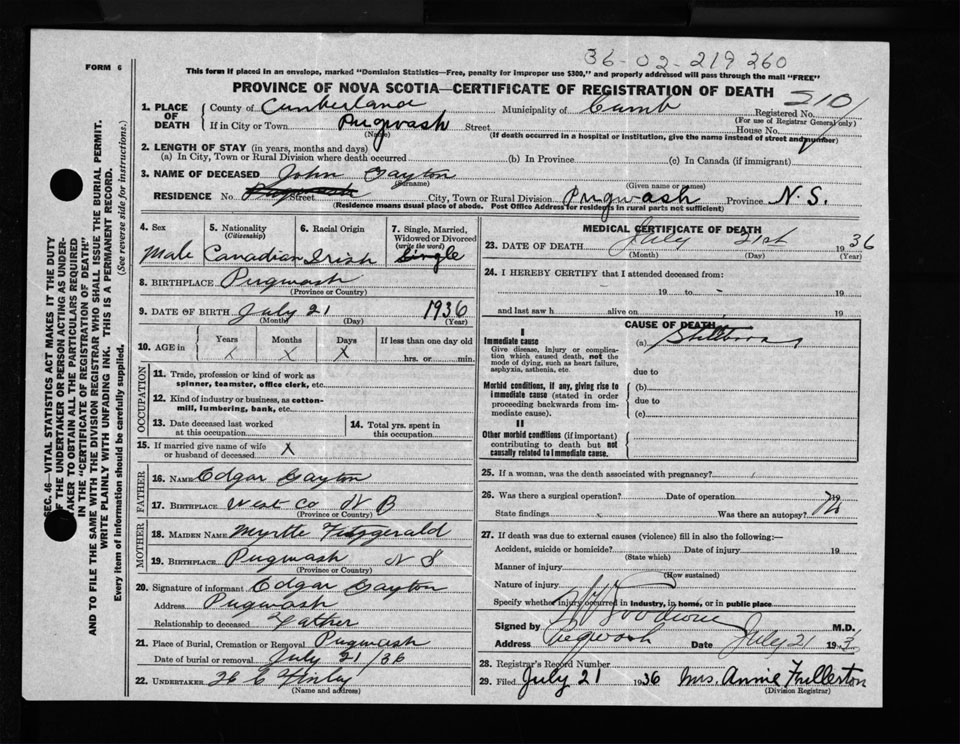 36-02-219260
FORM 6
This form if placed in an envelope, marked "Dominion Statistics—Free, penalty for improper use $300," and properly addressed will pass through the mail "FREE"
PROVINCE OF NOVA SCOTIA—CERTIFICATE OF REGISTRATION OF DEATH
1. PLACE OF DEATH County of Cumberland Municipality of Cumb Registered No. 210
(For use of Registrar General only)
If in City or Town Pugwash Street House No.
(Name) (If death occurred in a hospital or institution, give the name instead of street and number)
2. LENGTH OF STAY (in years, months and days)
(a) In City, Town or Rural Division where death occurred (b) In Province (c) In Canada (if immigrant)
3. NAME OF DECEASED John Gayton
(Surname) (Given name or names)
RESIDENCE No. Street City, Town or Rural Division Pugwash Province N.S.
(Residence means usual place of abode. Post Office Address for residents in rural parts not sufficient)
4. Sex 5. Nationality (Citizenship) 6. Racial Origin 7. Single, Married, Widowed or Divorced (write the word)
Male Canadian Irish Single
8. BIRTHPLACE Pugwash
(Province or Country)
9. DATE OF BIRTH July 21 1936
(Month) (Day) (Year)
10. AGE in Years Months Days If less than one day old
x x x hrs. or min.
OCCUPATION
11. Trade, profession or kind of work as spinner, teamster, office clerk, etc.
12. Kind of industry or business, as cotton-mill, lumbering, bank, etc.
13. Date deceased last worked at this occupation 14. Total yrs. spent in this occupation
15. If married give name of wife or husband of deceased X
FATHER
16. NAME Edgar Gayton
17. BIRTHPLACE West Co N B
(Province or Country)
MOTHER
18. MAIDEN NAME Myrtle Fitzgerald
19. BIRTHPLACE Pugwash N S
(Province or Country)
20. Signature of informant Edgar Gayton
Address Pugwash
Relationship to deceased Father
21. Place of Burial, Cremation or Removal Pugwash
Date of burial or removal July 21/36
22. UNDERTAKER
(Name and address)
MEDICAL CERTIFICATE OF DEATH
23. DATE OF DEATH July 21st 1936
(Month) (Day) (Year)
24. I HEREBY CERTIFY that I attended deceased from:
19 to 19
and last saw h alive on 19
CAUSE OF DEATH
I
Immediate cause (a) Stillborn
Give disease, injury or complication which caused death, not the mode of dying, such as heart failure, asphyxia, asthenia, etc.
due to
Morbid conditions, if any, giving rise to immediate cause (stated in order proceeding backwards from immediate cause).
(b)
due to
(c)
II
Other morbid conditions (if important) contributing to death but not causally related to immediate cause.
25. If a woman, was the death associated with pregnancy?
26. Was there a surgical operation? Date of operation 19
State findings Was there an autopsy? No
27. If death was due to external causes (violence) fill in also the following:—
Accident, suicide or homicide? Date of injury 19
(State which)
Manner of injury
(How sustained)
Nature of injury
Specify whether injury occurred in industry, in home, or in public place
Signed by M.D.
Address Pugwash Date July 21 193
28. Registrar's Record Number
29. Filed July 21 1936 Mrs. Annie Fullerton
(Division Registrar)
SEC. 46—VITAL STATISTICS ACT MAKES IT THE DUTY
OF THE UNDERTAKER OR PERSON ACTING AS UNDER-
TAKER TO OBTAIN ALL THE PARTICULARS REQUIRED
IN THE "CERTIFICATE OF REGISTRATION OF DEATH"
AND TO FILE THE SAME WITH THE DIVISION REGISTRAR WHO SHALL ISSUE THE BURIAL PERMIT.
WRITE PLAINLY WITH UNFADING INK. THIS IS A PERMANENT RECORD.
Every item of information should be carefully supplied. (See reverse side for instructions.)